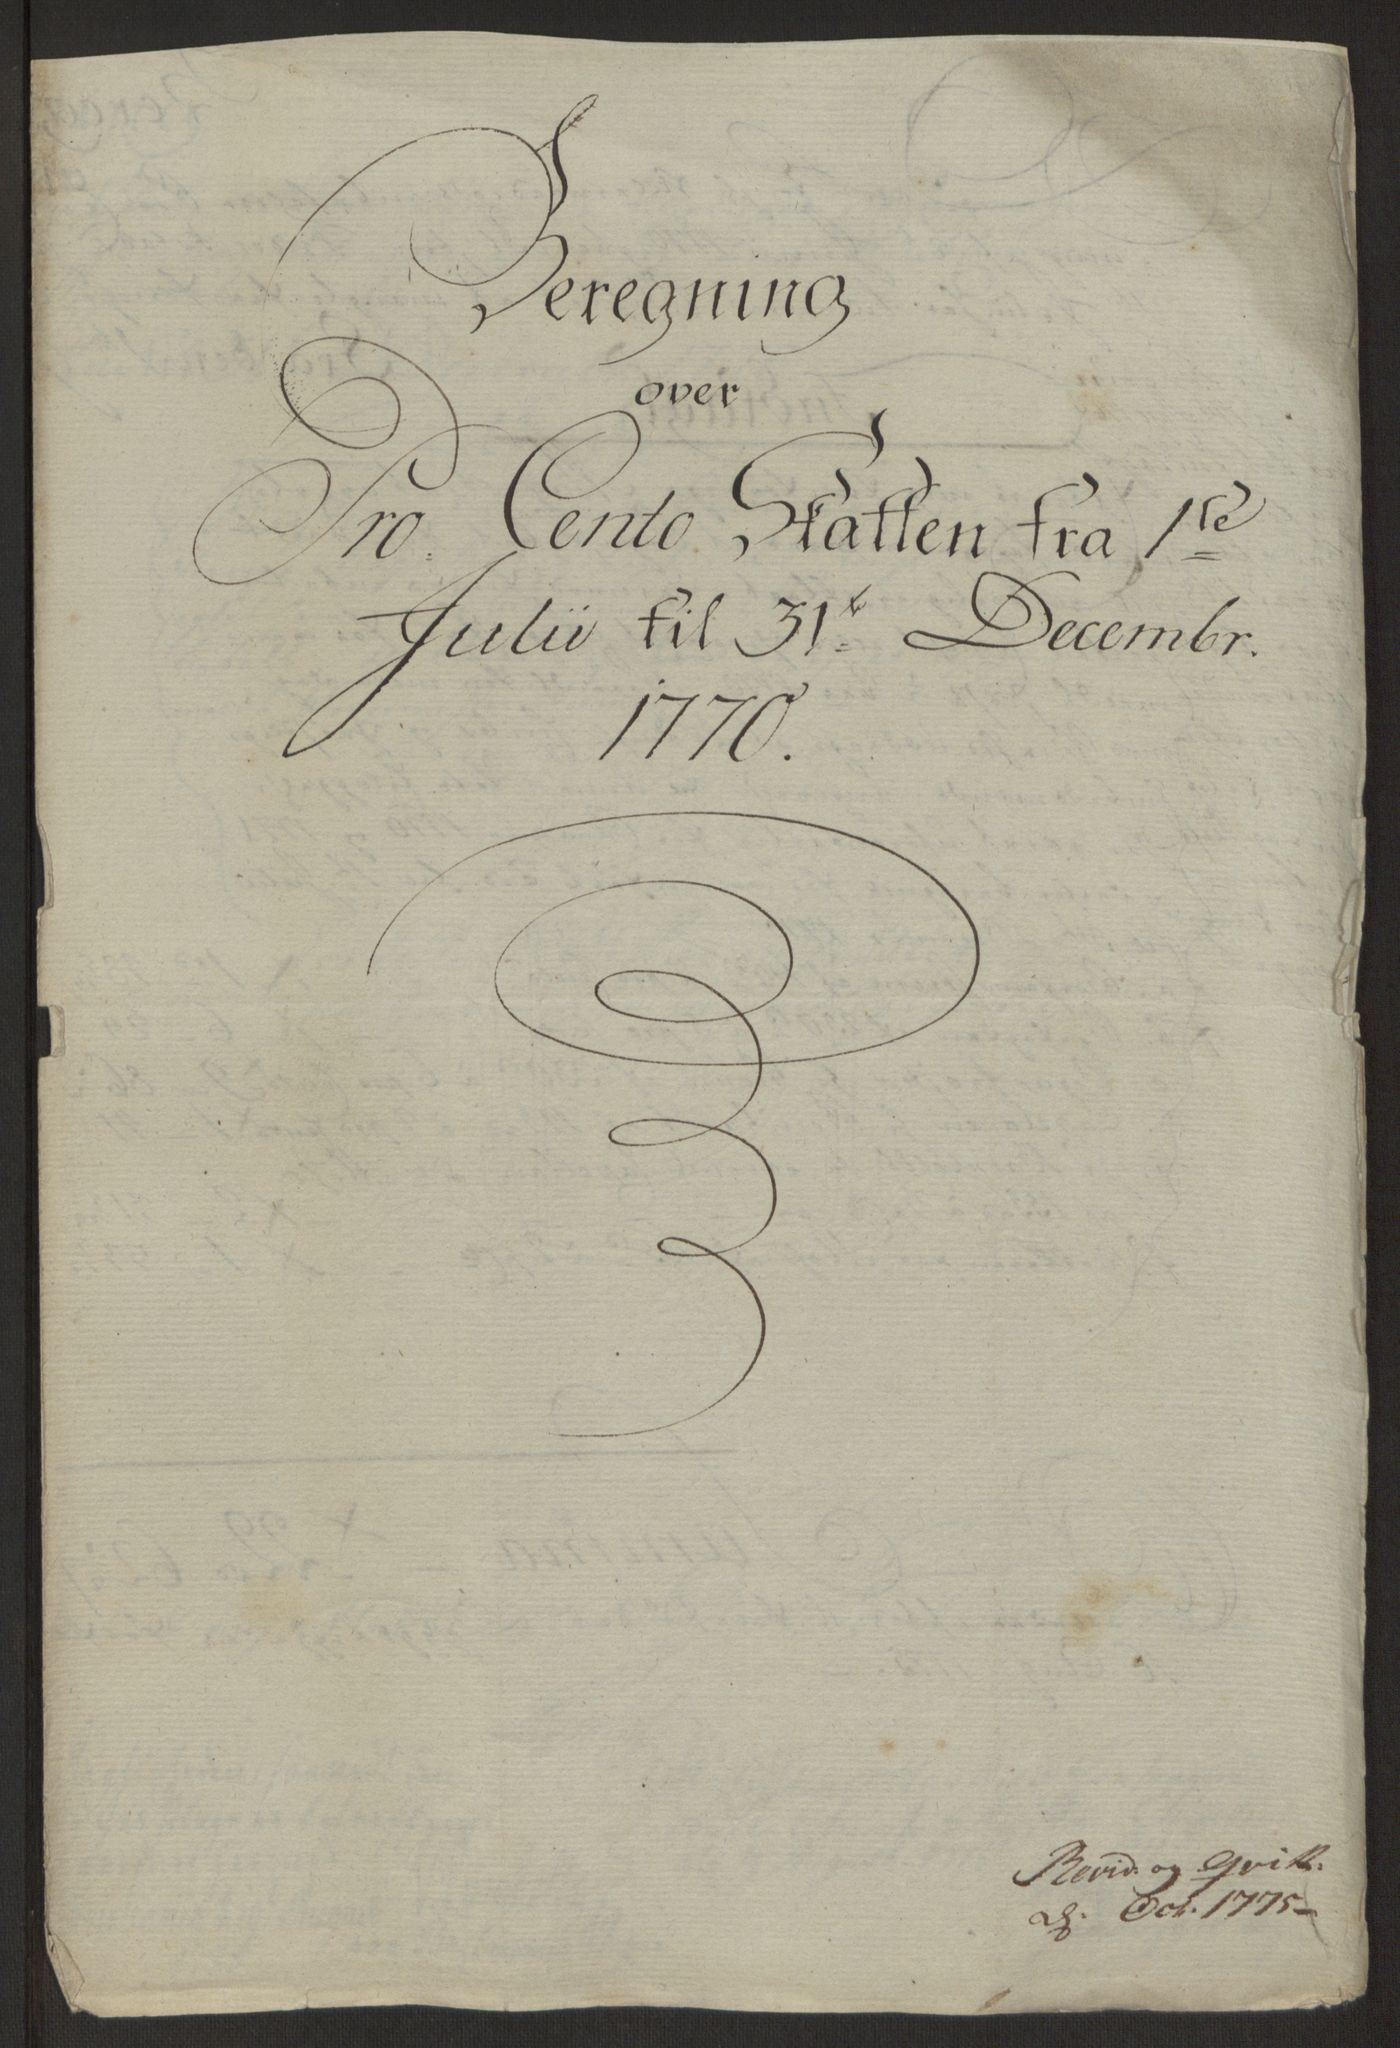 Beregning
over
Pro Cento Skatten fra 1ste
Julii til 31te Decembr.
1770.
Revid. og Qvitt.
d. Oct. 1775